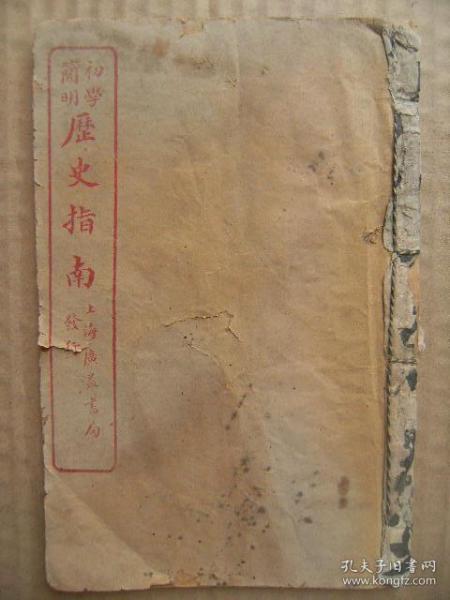 初學
簡明
歷史指南
上海廣益書局
發行
孔夫子旧书网
www.kongfz.com